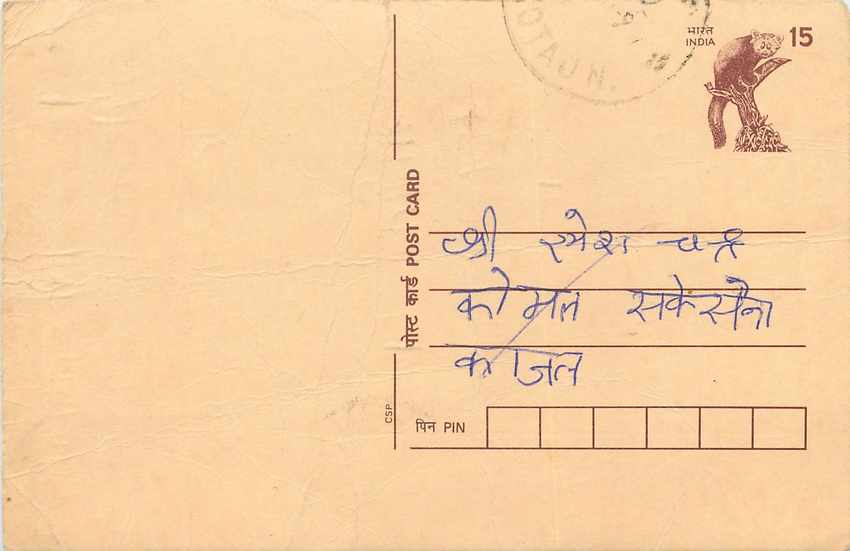 OTAUN.
भारत 15
INDIA
पोस्ट कार्ड POST CARD
श्री रमेश चन्द्र
कोमल सकेसेना
काजल
CSP
पिन PIN